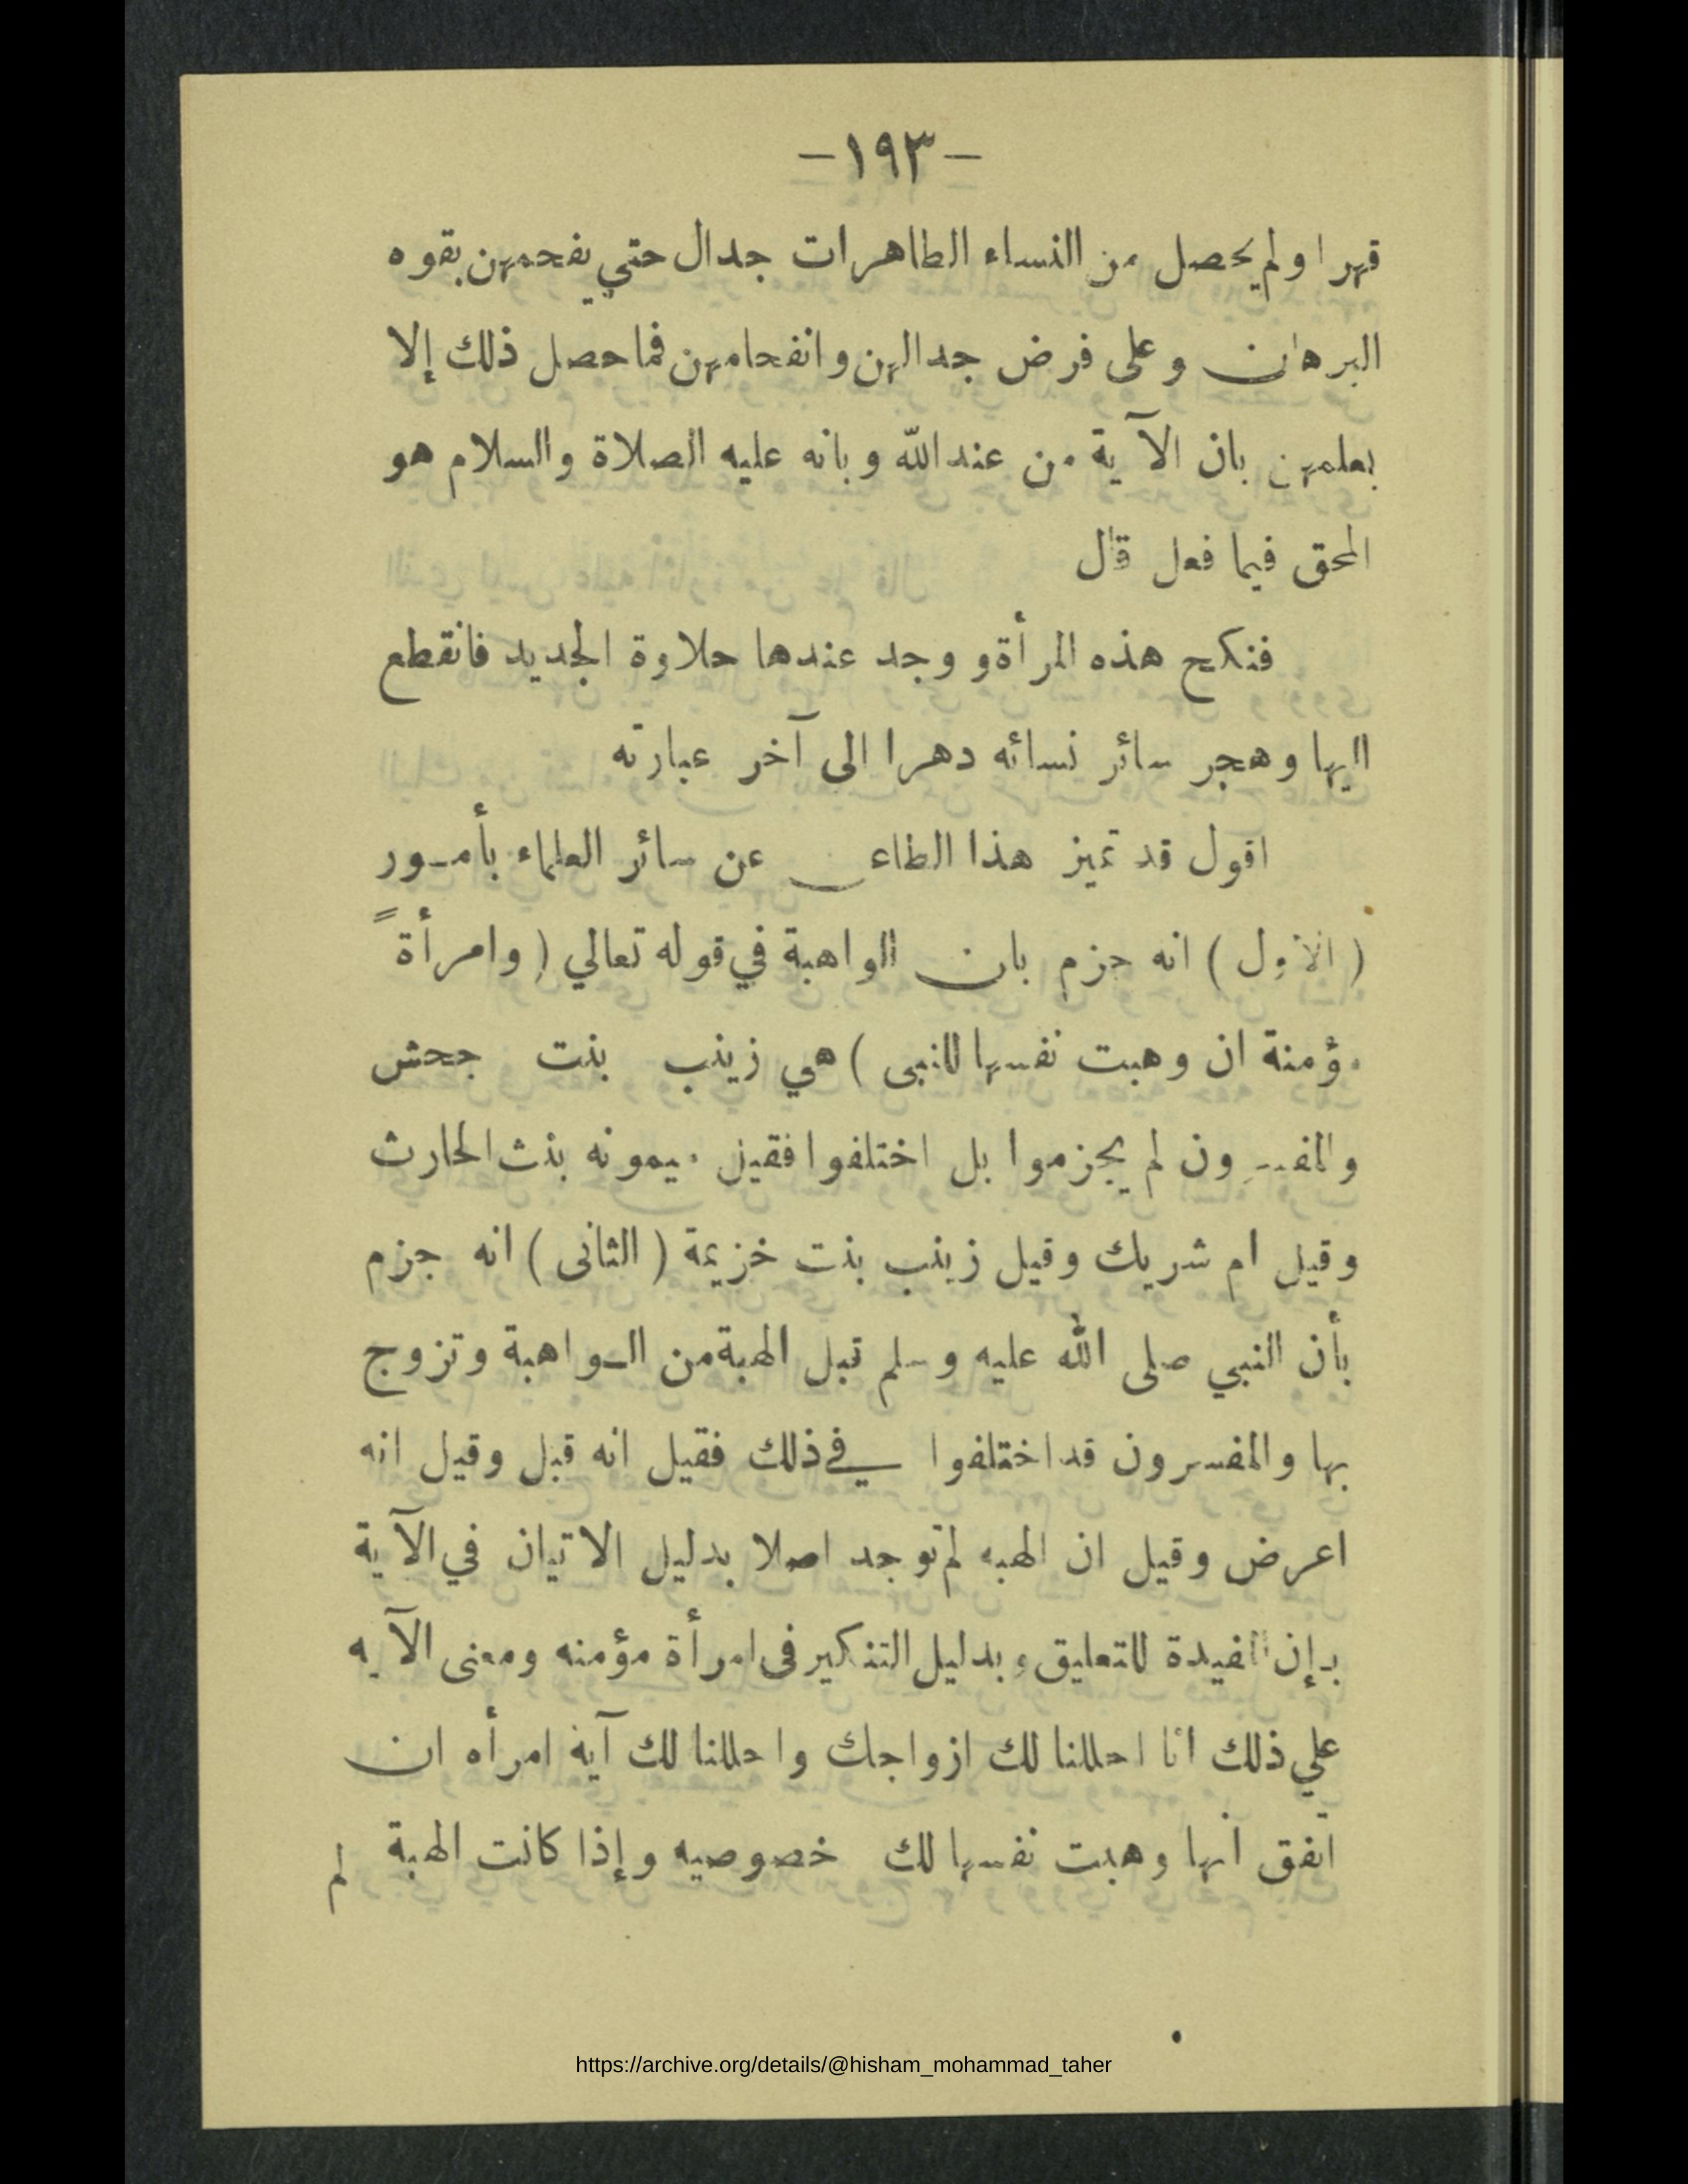 -١٩٣-
قهرا ولم يحصل من النساء الطاهرات جدال حتي يفحمهن بقوه
البرهان وعلى فرض جدالهن وانفحامهن فما حصل ذلك إلا
بعلمهن بان الآية من عند الله وبانه عليه الصلاة والسلام هو
المحق فيما فعل قال
فنكح هذه المرأة ووجد عندها حلاوة الجديد فانقطع
اليها وهجر سائر نسائه دهرا الى آخر عبارته
اقول قد تميز هذا الطاعن عن سائر العلماء بأمور
( الاول ) انه جزم بان الواهبة في قوله تعالي ( وامرأةً
مؤمنة ان وهبت نفسها للنبى ) هي زينب بنت جحش
والمفسرون لم يجزموا بل اختلفوا فقيل ميمونه بنت الحارث
وقيل ام شريك وقيل زينب بنت خزيمة ( الثانى ) انه جزم
بأن النبي صلى الله عليه وسلم قبل الهبة من الواهبة وتزوج
بها والمفسرون قد اختلفوا في ذلك فقيل انه قبل وقيل انه
اعرض وقيل ان الهبه لم توجد اصلا بدليل الاتيان في الآية
بإن المفيدة للتعليق وبدليل التنكير فى امرأة مؤمنه ومعنى الآيه
علي ذلك انا احللنا لك ازواجك واحللنا لك آية امرأه ان
اتفق انها وهبت نفسها لك خصوصيه وإذا كانت الهبة لم
https://archive.org/details/@hisham_mohammad_taher